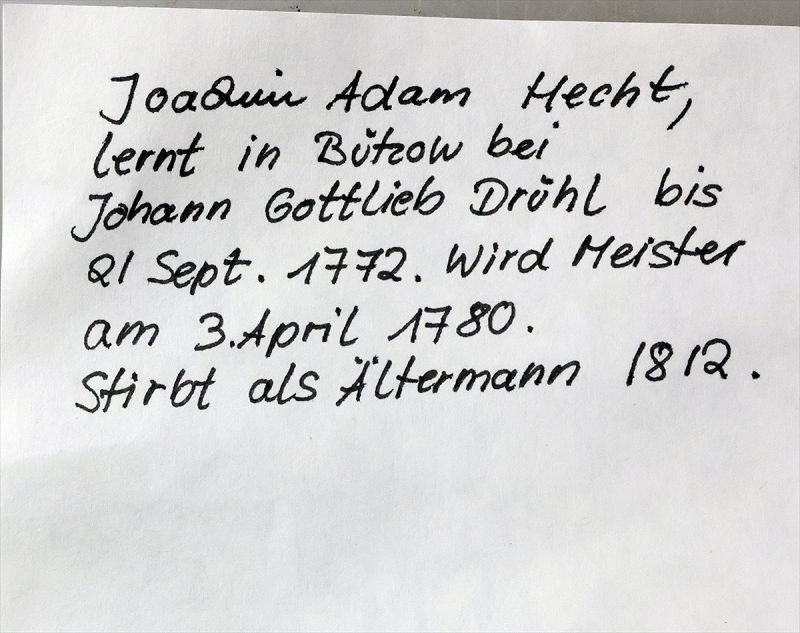 Joaquin Adam Hecht,
lernt in Bützow bei
Johann Gottlieb Drühl bis
21 Sept. 1772. Wird Meister
am 3. April 1780.
Stirbt als Ältermann 1812.